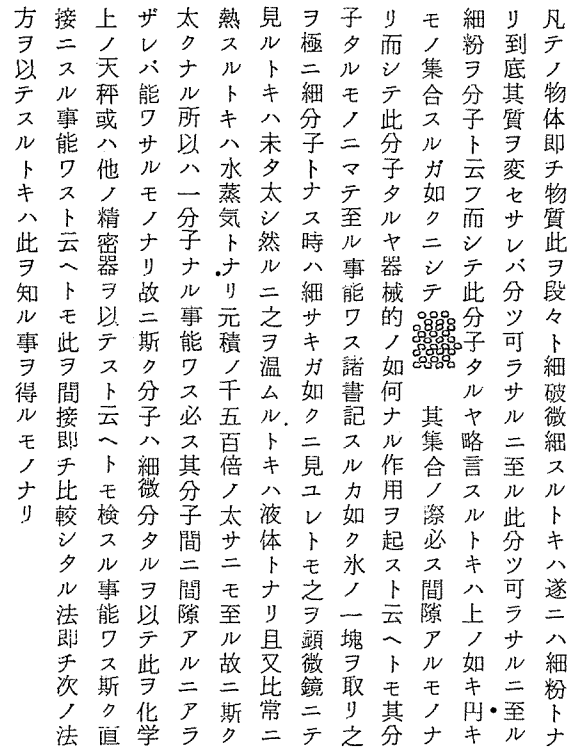 凡テノ物体即チ物質此ヲ段々ト細破微細スルトキハ遂ニハ細粉トナ
リ到底其質ヲ変セサレバ分ツ可ラサルニ至ル此分ツ可ラサルニ至ル
細粉ヲ分子ト云フ而シテ此分子タルヤ略言スルトキハ上ノ如キ円キ
モノ集合スルガ如クニシテ 其集合ノ際必ス間隙アルモノナ
リ而シテ此分子タルヤ器械的ノ如何ナル作用ヲ起スト云ヘトモ其分
子タルモノニマテ至ル事能ワス諸書記スルカ如ク氷ノ一塊ヲ取リ之
ヲ極ニ細分子トナス時ハ細サキガ如クニ見ユレトモ之ヲ顕微鏡ニテ
見ルトキハ未タ太シ然ルニ之ヲ温ムルトキハ液体トナリ且又比常ニ
熱スルトキハ水蒸気トナリ元積ノ千五百倍ノ太サニモ至ル故ニ斯ク
太クナル所以ハ一分子ナル事能ワス必ス其分子間ニ間隙アルニアラ
ザレバ能ワサルモノナリ故ニ斯ク分子ハ細微分タルヲ以テ此ヲ化学
上ノ天秤或ハ他ノ精密器ヲ以テスト云ヘトモ検スル事能ワス斯ク直
接ニスル事能ワスト云ヘトモ此ヲ間接即チ比較シタル法即チ次ノ法
方ヲ以テスルトキハ此ヲ知ル事ヲ得ルモノナリ